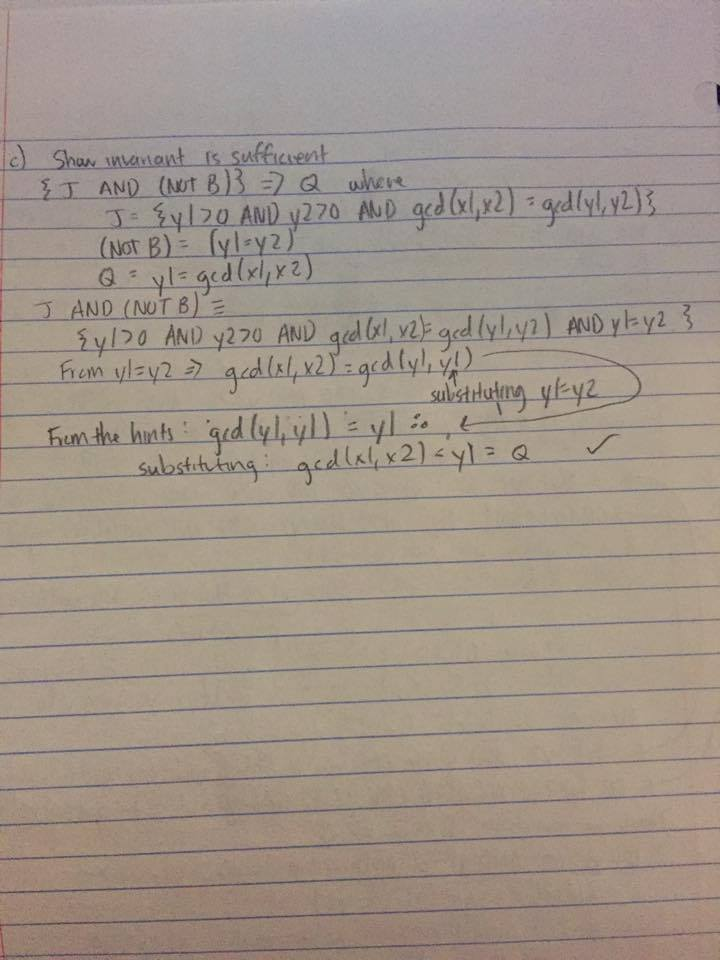 c) Show invariant is sufficient
{J AND (NOT B)} => Q where
J = {y1>0 AND y2>0 AND gcd(x1,x2) = gcd(y1,y2)}
(NOT B) = (y1=y2)
Q = y1=gcd(x1,x2)
J AND (NOT B) ≡
{y1>0 AND y2>0 AND gcd(x1,x2)=gcd(y1,y2) AND y1=y2}
From y1=y2 => gcd(x1,x2)=gcd(y1,y1)
substituting y1=y2
From the hints: gcd(y1,y1) = y1 ∴
substituting: gcd(x1,x2) = y1 = Q ✓